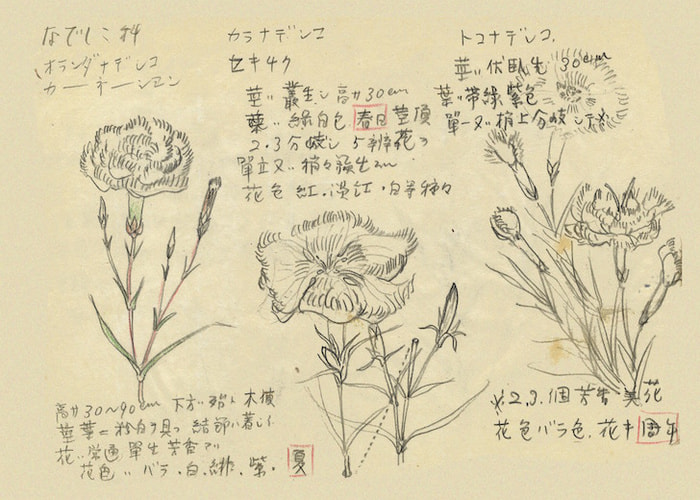 なでしこ科
オランダナデシコ
カーネーション
高サ30～90cm 下方ハ殆ト木質
茎葉ニ粉白ヲ具ヘ 結節ハ著シ
花ハ普通 單生 芳香アリ
花色ハ バラ・白・緋・紫・
夏
カラナデシコ
セキチク
茎ハ叢生シ高サ30cm
葉ハ緑白色 春日 茎頂
2.3分岐シ 5辨花ヲ
單立又ハ稍々
花色 紅・淡紅・白等種々
トコナデシコ
茎ハ伏臥生 30cm
葉ハ帯緑紫色
單一又ハ梢上分岐シテ
1.2.3.個芳香 美花
花色バラ色、花キ 周年